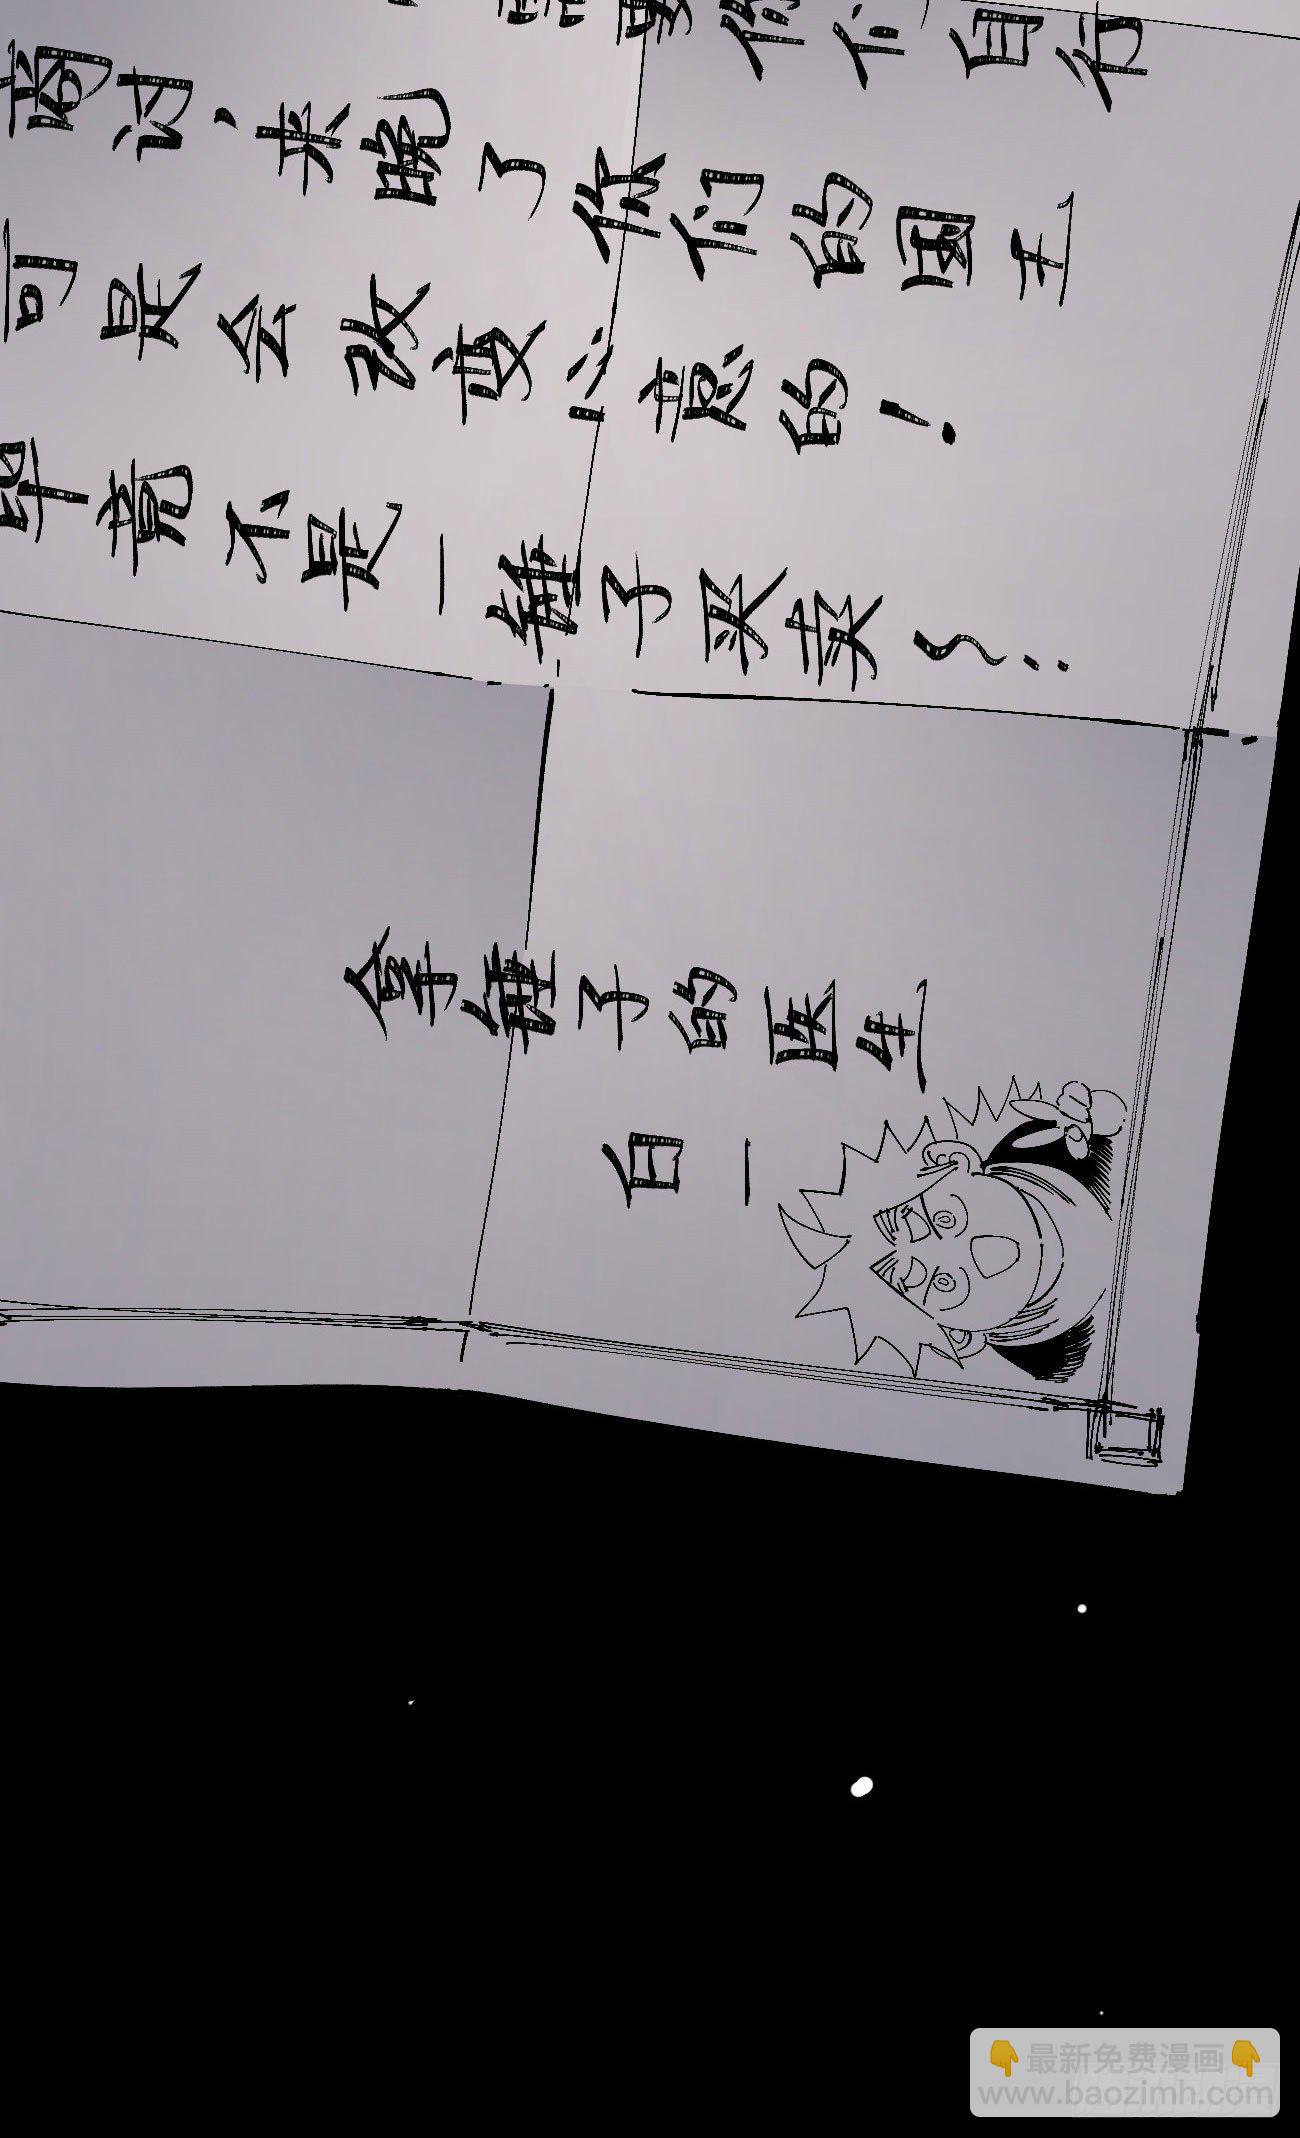 要你们自行
商讨，来晚了你们的国王
可是会改变心意的！
毕竟不是一锤子买卖～：
拿锤子的医生
白一
👇最新免费漫画👇
www.baozimh.com